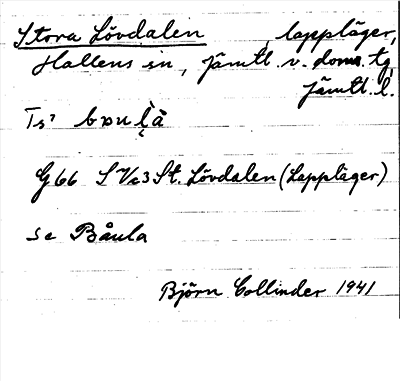 Stora Lövdalen lappläger,
Hallens sn, Jämtl. v. doms. tg
Jämtl. l.
G 66 St. Lövdalen (Lappläger)
se Båula
Björn Collinder 1941